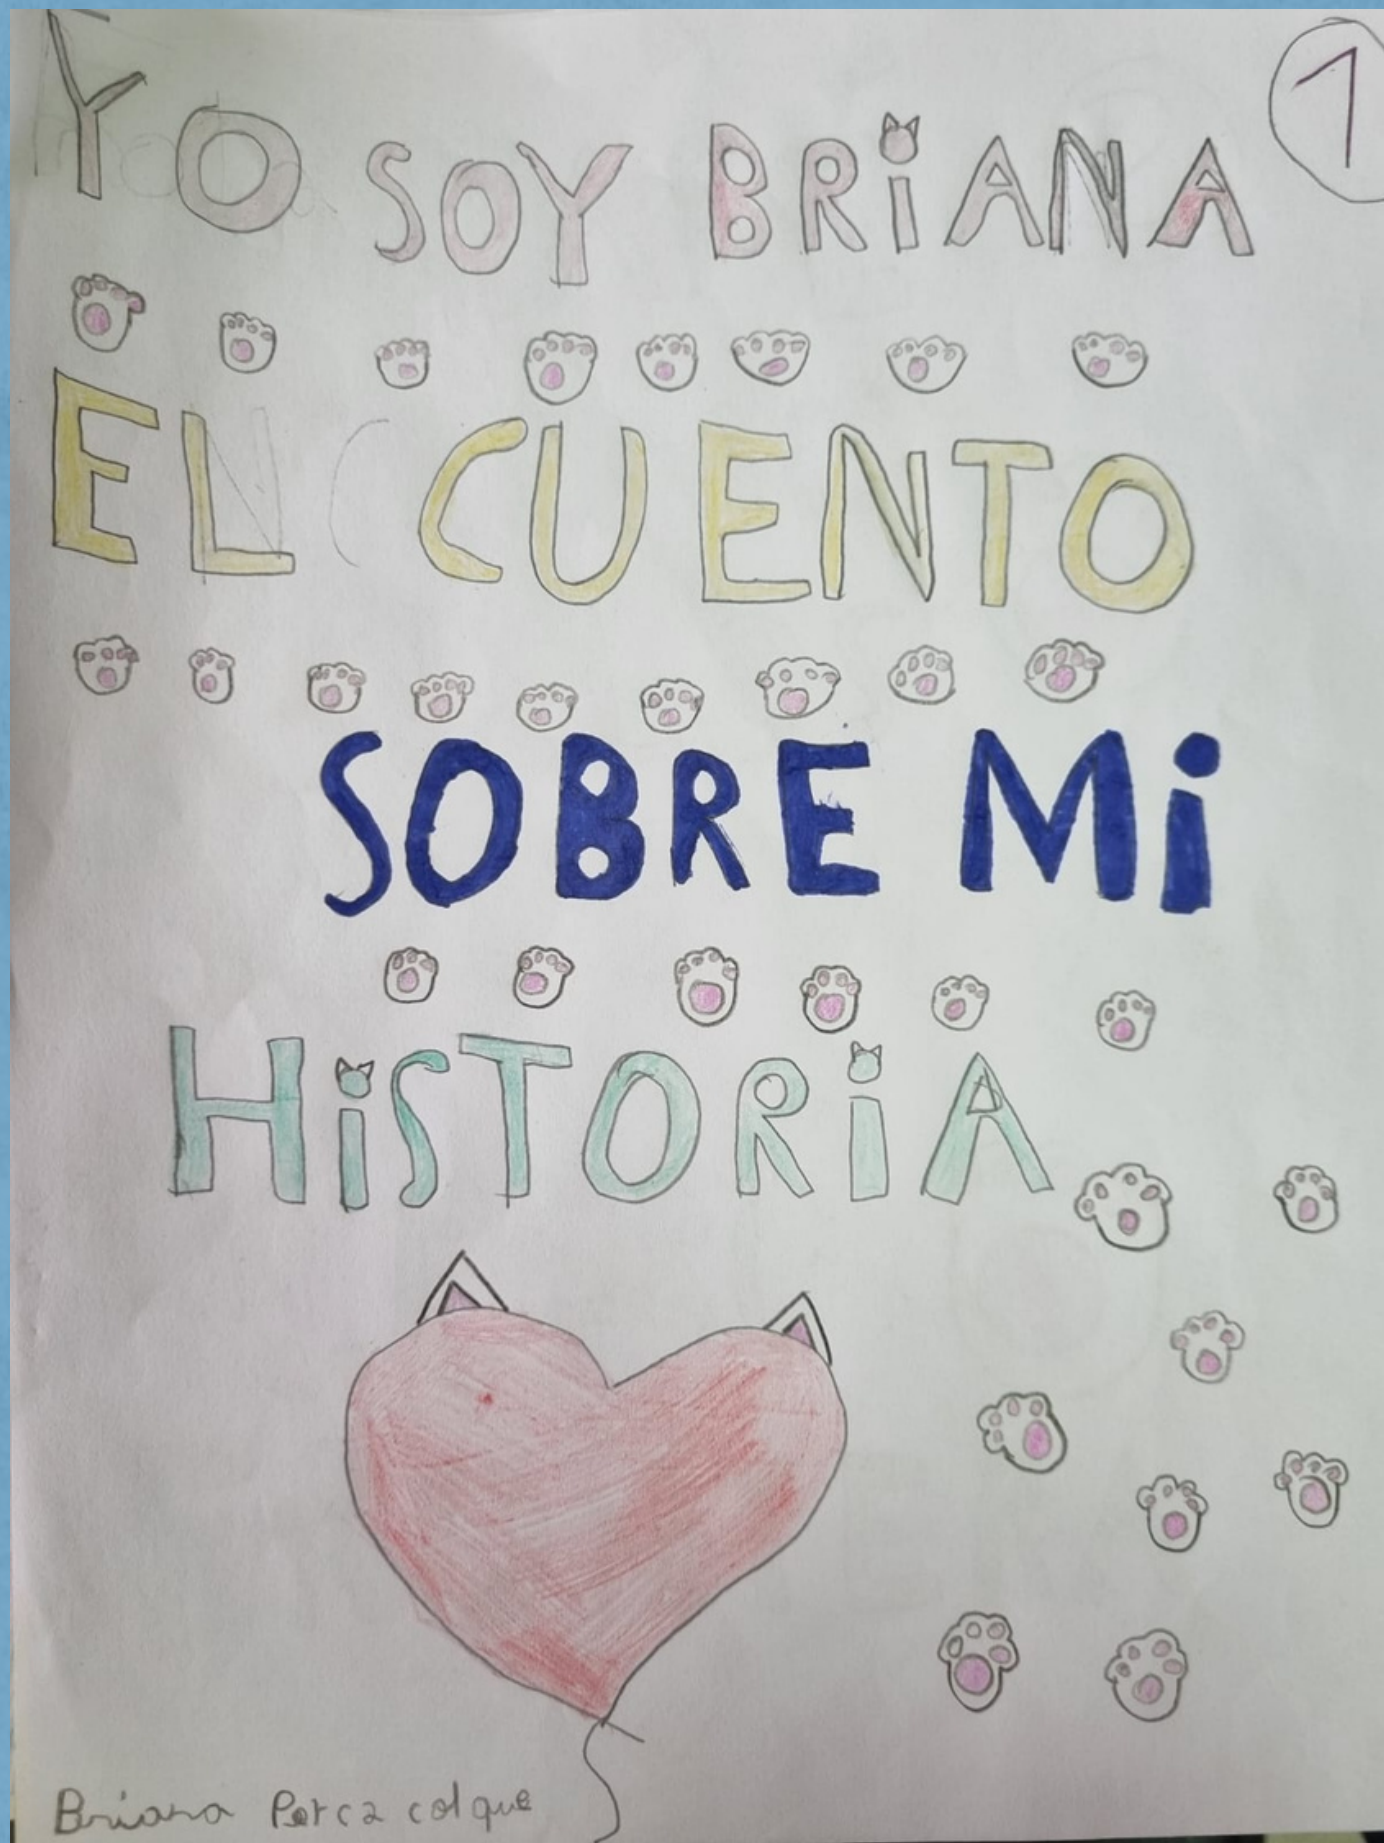 1
YO SOY BRiANA
EL CUENTO
SOBRE Mi
HiSTORiA
Briana Perca colque